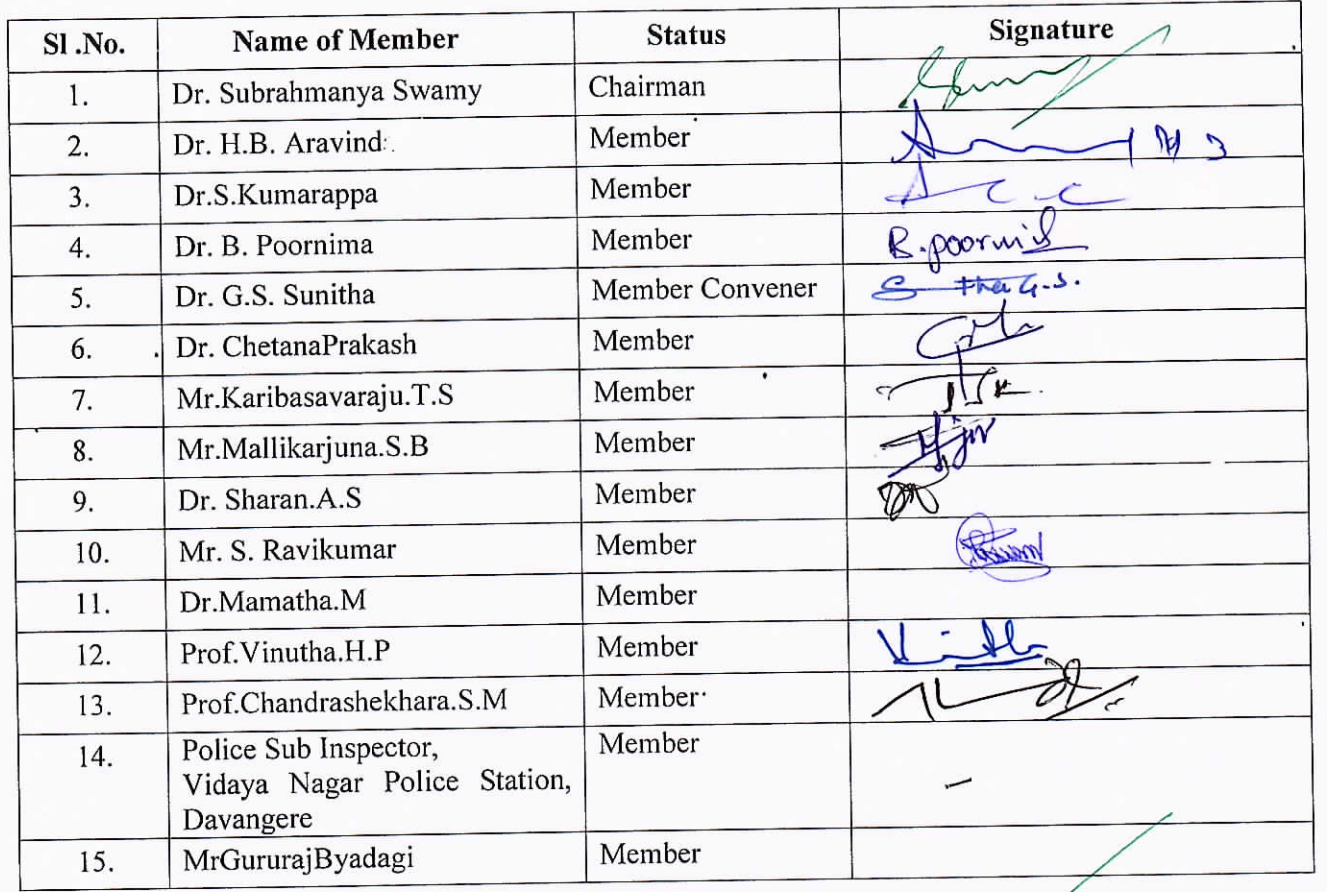 Sl .No. Name of Member Status Signature
1. Dr. Subrahmanya Swamy Chairman
2. Dr. H.B. Aravind Member
3. Dr.S.Kumarappa Member
4. Dr. B. Poornima Member B.poornima
5. Dr. G.S. Sunitha Member Convener
6. Dr. ChetanaPrakash Member
7. Mr.Karibasavaraju.T.S Member
8. Mr.Mallikarjuna.S.B Member
9. Dr. Sharan.A.S Member
10. Mr. S. Ravikumar Member
11. Dr.Mamatha.M Member
12. Prof.Vinutha.H.P Member
13. Prof.Chandrashekhara.S.M Member
14. Police Sub Inspector, Member
Vidaya Nagar Police Station, –
Davangere
15. MrGururajByadagi Member